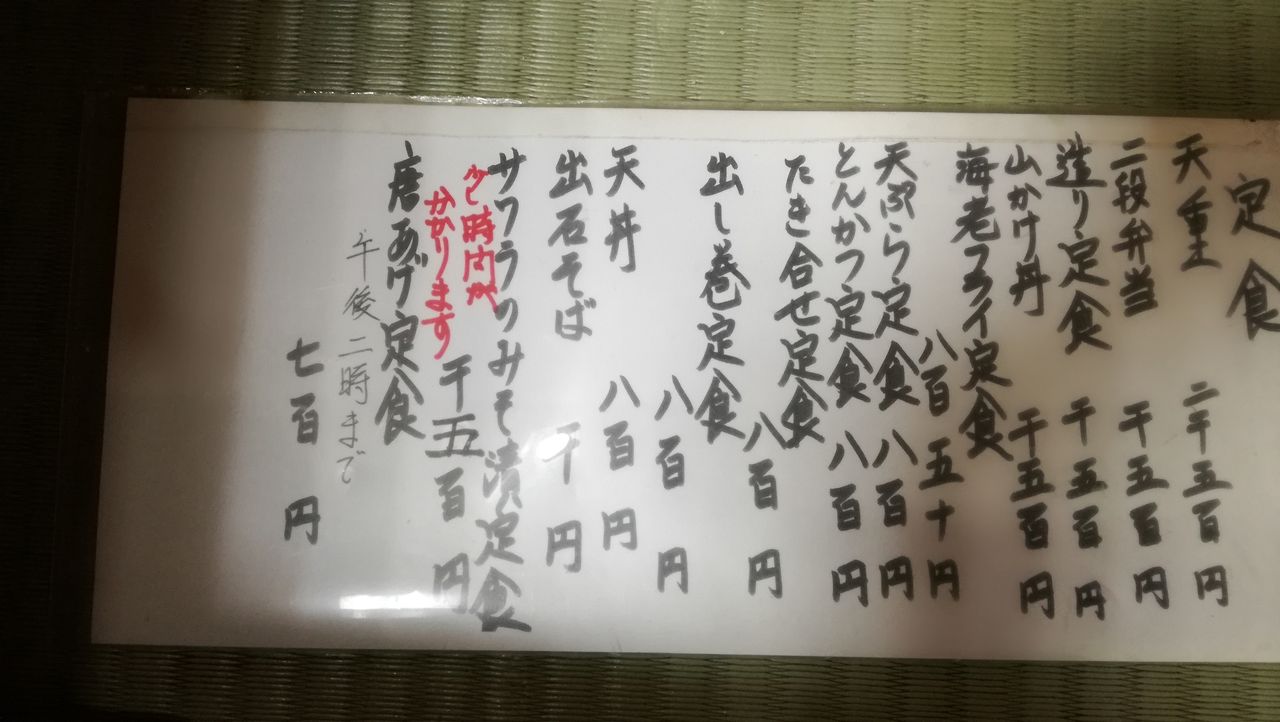 定食
天重 二千五百円
二段弁当 千五百円
造り定食 千五百円
山かけ丼 千五百円
海老フライ定食
八百五十円
天ぷら定食 八百円
とんかつ定食 八百円
たき合せ定食
八百円
出し巻定食
八百円
天丼 八百円
出石そば 千円
サワラのみそ漬定食
少し時間が
かかります
千五百円
唐あげ定食
午後二時まで
七百円